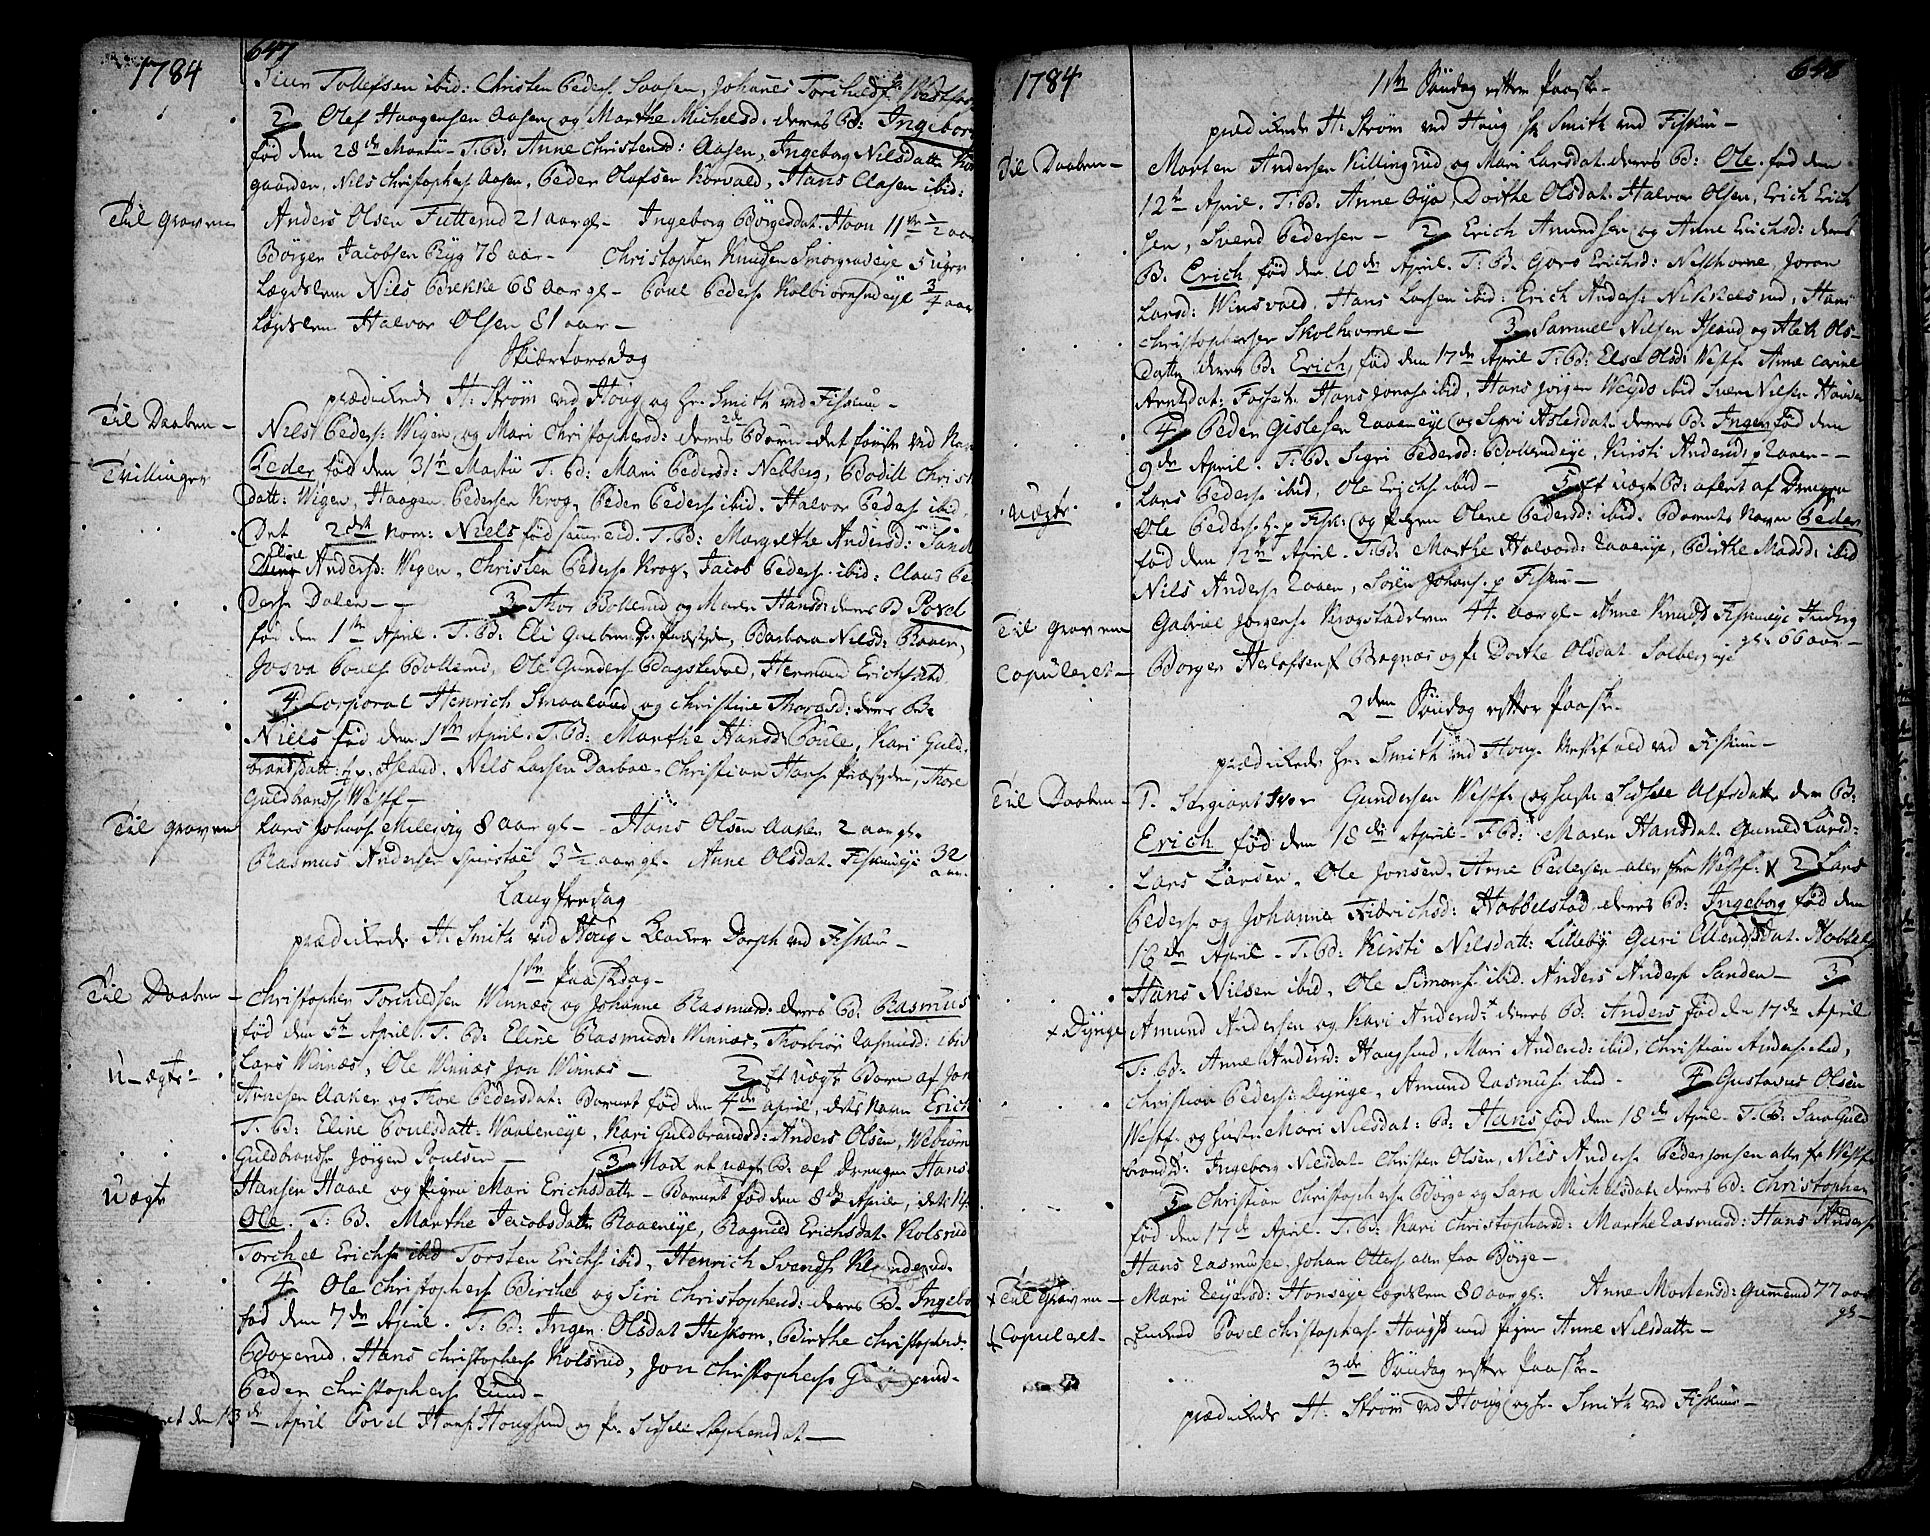 1784
647
Siur Tollefsen ibid: Christen Peders. Saasen, Johanes Torchilds.
2 Olef Haagensen Aasen og Marthe Michelsd: deres B: Ingeborg
fød den 28de Martii - T. B: Anne Christensd: Aasen, Ingeborg Nilsdatt.
gaarden, Nils Christophers. Aasen, Peder Olafsen Korvald, Hans Clasen ibid:
Til Graven
Anders Olsen Futterud 21 aar gl - Ingeborg Börgesdat. Hoen 11 1/2 aar
Börger Jacobsen Ryg 78 aar - Christopher Knudsen Smörgraveye 5 uger
Lægdslem Nils Bekke 68 aar gl - Poul Peders. Kolbiörnsrudeye 3/4 aar
Legdslem Halvor Olsen 81 aar -
Skiærtorsdag
prædickede H: Ström ved Houg og Hr. Smith ved Fiskum -
Til Daaben -
Nils Peders: Wigen og Mari Christophersd: deres 2de Börn - det förste ved Navn
Tvillinger
Peder fød den 31te Martii T. B: Mari Pedersd: Nebberg, Bodill Christ
datt: Wigen, Haagen Pedersen Krog, Peder Peders. ibid. Halvor Peders. ibid.
Det 2det Nom: Niels fød samme Tid. T. B: Margrethe Andersd: Sand
Eline Andersd: Wigen, Christen Peders. Krog, Jacob Peders. ibid: Claus Pe
ders. Dalen - - 3 Thor Bollerud og Maren Hansd: deres B Povel
fød den 1te April. T. B: Eli Præstyden, Barbara Nilsd: Raaen,
Josva Pouls. Bollerud, Ole Gunders. Bagstevol, Herman Erichs. ibid
4 Corporal Henrich Smaaland og Christine Thorasd: deres B.
Niels fød den 1te April. T. B: Marthe Hansd: Poule, Kari Guld-
brandsdatt: Ísland. Nils Larsen Darboe - Christian Hans. Præstyden, Thore
Guldbrands. Westf -
Til Graven
Lars Johans. Millesvig 8 aar gl - Hans Olsen Aasen 2 aar gl.
Rasmus Anders. 3 1/2 aar gl - Anne Olsdat. Fiskumeye 32 aar.
Langfredag
prædickede H. Smith ved Houg - Klocker Dorph ved Fiskum -
1te Paaskedag -
Til Daaben -
Christopher Torchildsen Winnæs og Johanne Rasmusd: deres B. Rasmus
fød den 5te April. T. B: Eline Rasmusd: Winnæs, Thorbiör Rasmusd: ibid
Lars Winnæs, Ole Winnæs Jon Winnæs -
U-ægte -
2 Et uægte Barn af Jon
Arnesen Aaker og Thore Pedersdat: Barnet fød den 4de April, dets Navn Erich
T. B: Eline Poulsdatt: Waaleneye, Kari Guldbrandsd: Anders Olsen, Webiörn
Guldbrands. Jörgen Poulsen -
3 Nok et uægte B. af Drengen Hans
uægte
Hansen Haare og Pigen Mari Erichsdatt - Barnet fød den 8de April, dets N:
Ole. T. B. Marthe Jacobsdatt. Raaeneye, Ragnild Erichsdat. Kolsrud
Torchel Erichs. ibid Torsten Erichs. ibid, Henrich Svends.
4 Ole Christophers. Birche og Siri Christophersd: deres B. Ingeborg
fød den 7de April. T: B: Inger Olsdat Huskom, Birthe Christophersd:
Boxerud, Hans Christophers. Kolsrud, Jon Christophers.
Peder Christophers. Lund -
den 13de April Povel Hans. Hougsund og P. Sidsele Stephensdat -
1784
648
1te Söndag efter Paaske -
prædickede H: Ström ved Houg Hr. Smith ved Fiskum -
Til Daaben -
Morten Andersen Killingrud og Mari Larsdat. deres B: Ole. fød den
12te April. T: B. Anne Öya Dorthe Olsdat. Halvor Olsen, Erich Erich
sen, Svend Pedersen - 2 Erich Amundsen og Anne Erichsd: deres
B. Erich fød den 10de April. T. B. Gorv Erichsd: Joran
Larsd: Winsvald. Hans Larsen ibid: Erich Anders. Nikkelsrud, Hans
Christophersen Skolhorne - 3 Samuel Nilsen Island og Aleth Ols-
datt. deres B: Erich, fød den 17de April T. B: Else Olsd: Westf. Anne Carine
Arntzdat: Fosseh: Hans Jonas. ibid, Hans Jörgen Weyds ibid Nilsen
4 Peder Gislesen Raaeneye og Sigri Asle sdat deres B. Inger fød den
9de April. T. B: Sigri Pedersd: Bollerudeye, Kirsti Andersd: p Raaen - -
Lars Peders. ibid, Ole Erichs. ibid -
uægte.
5 Et uægte B: aflet af Drengen
Ole Peders. p Fisk: og Pigen Olene Pedersd: ibid. Barnets Navn Peder
fød den 12te April. T. B: Marthe Halvorsd: Raaeneye, Birthe Madsd: ibid
Nils Anders. Raaen, Sören Johans. p Fiskum -
Til Graven
Gabriel Jörgens. Krogstadelven 44. aar gl - Anne Knudsd Fiskumeye
gl. 66 aar -
Copuleret -
Börger Helofsen Bagnæs og P. Dorthe Olsdat. Solbergeye
2den Söndag efter Paaske.
prædickede Hr. Smith ved Houg. Messefald ved Fiskum -
Til Daaben -
1. Sergiant Iver Gundersen Westf. og Hustr. Sidsele Alfsdatt. deres B:
Erich fød den 18de April - T. B: Maren Hansdat. Gunild Larsd:
Lars Larsen, Ole Jonsen, Arne Pedersen - alle fra Westf: 2 Lars
Peders. og Johanne Didrichsd: Hobbelstad deres B: Ingeborg fød den
16de April - T. B: Kirsti Nilsdatt: Lilleby Guri Ellendsdat. Hobbels
Hans Nilsen ibid, Ole Simons. ibid. Anders Anders. Sanden - 3
x Dynge
Amund Andersen og Kari Andersd.x deres B: Anders fød den 17de April
T. B: Anne Andersd: Haugsund, Mari Andersd: ibid, Christian Anders. ibid,
Christian Peders: Dynge, Amund Rasmus. ibid - 4 Gustavus Olsen
Westf. og Hustr. Mari Nilsdat: B: Hans fød den 18de April. T. B: Sara Guld
brandsd: Ingeborg Nilsdat. Christen Olsen, Nils Anders. Peder Jonsen alle fr Westf.
5 Christian Christophers. Börge og Sara Michelsdat. deres B: Christopher
fød den 17de April. T. B: Kari Christophersd: Marthe Rasmusd: Hans Anders.
Hans Rasmusen, Johan Otters. alle fra Börge -
x Til Graven -
Mari Reyersd: Honseye Legdslem 80 aar gl: Anne Mortensd: Gunerud 77 aar
gl -
x Copuleret -
Enkem: Povel Christophers. Hougs. med Pigen Anne Nilsdatt -
3de Söndag efter Paaske -
prædickede H. Ström ved Houg og Hr. Smith ved Fiskum -